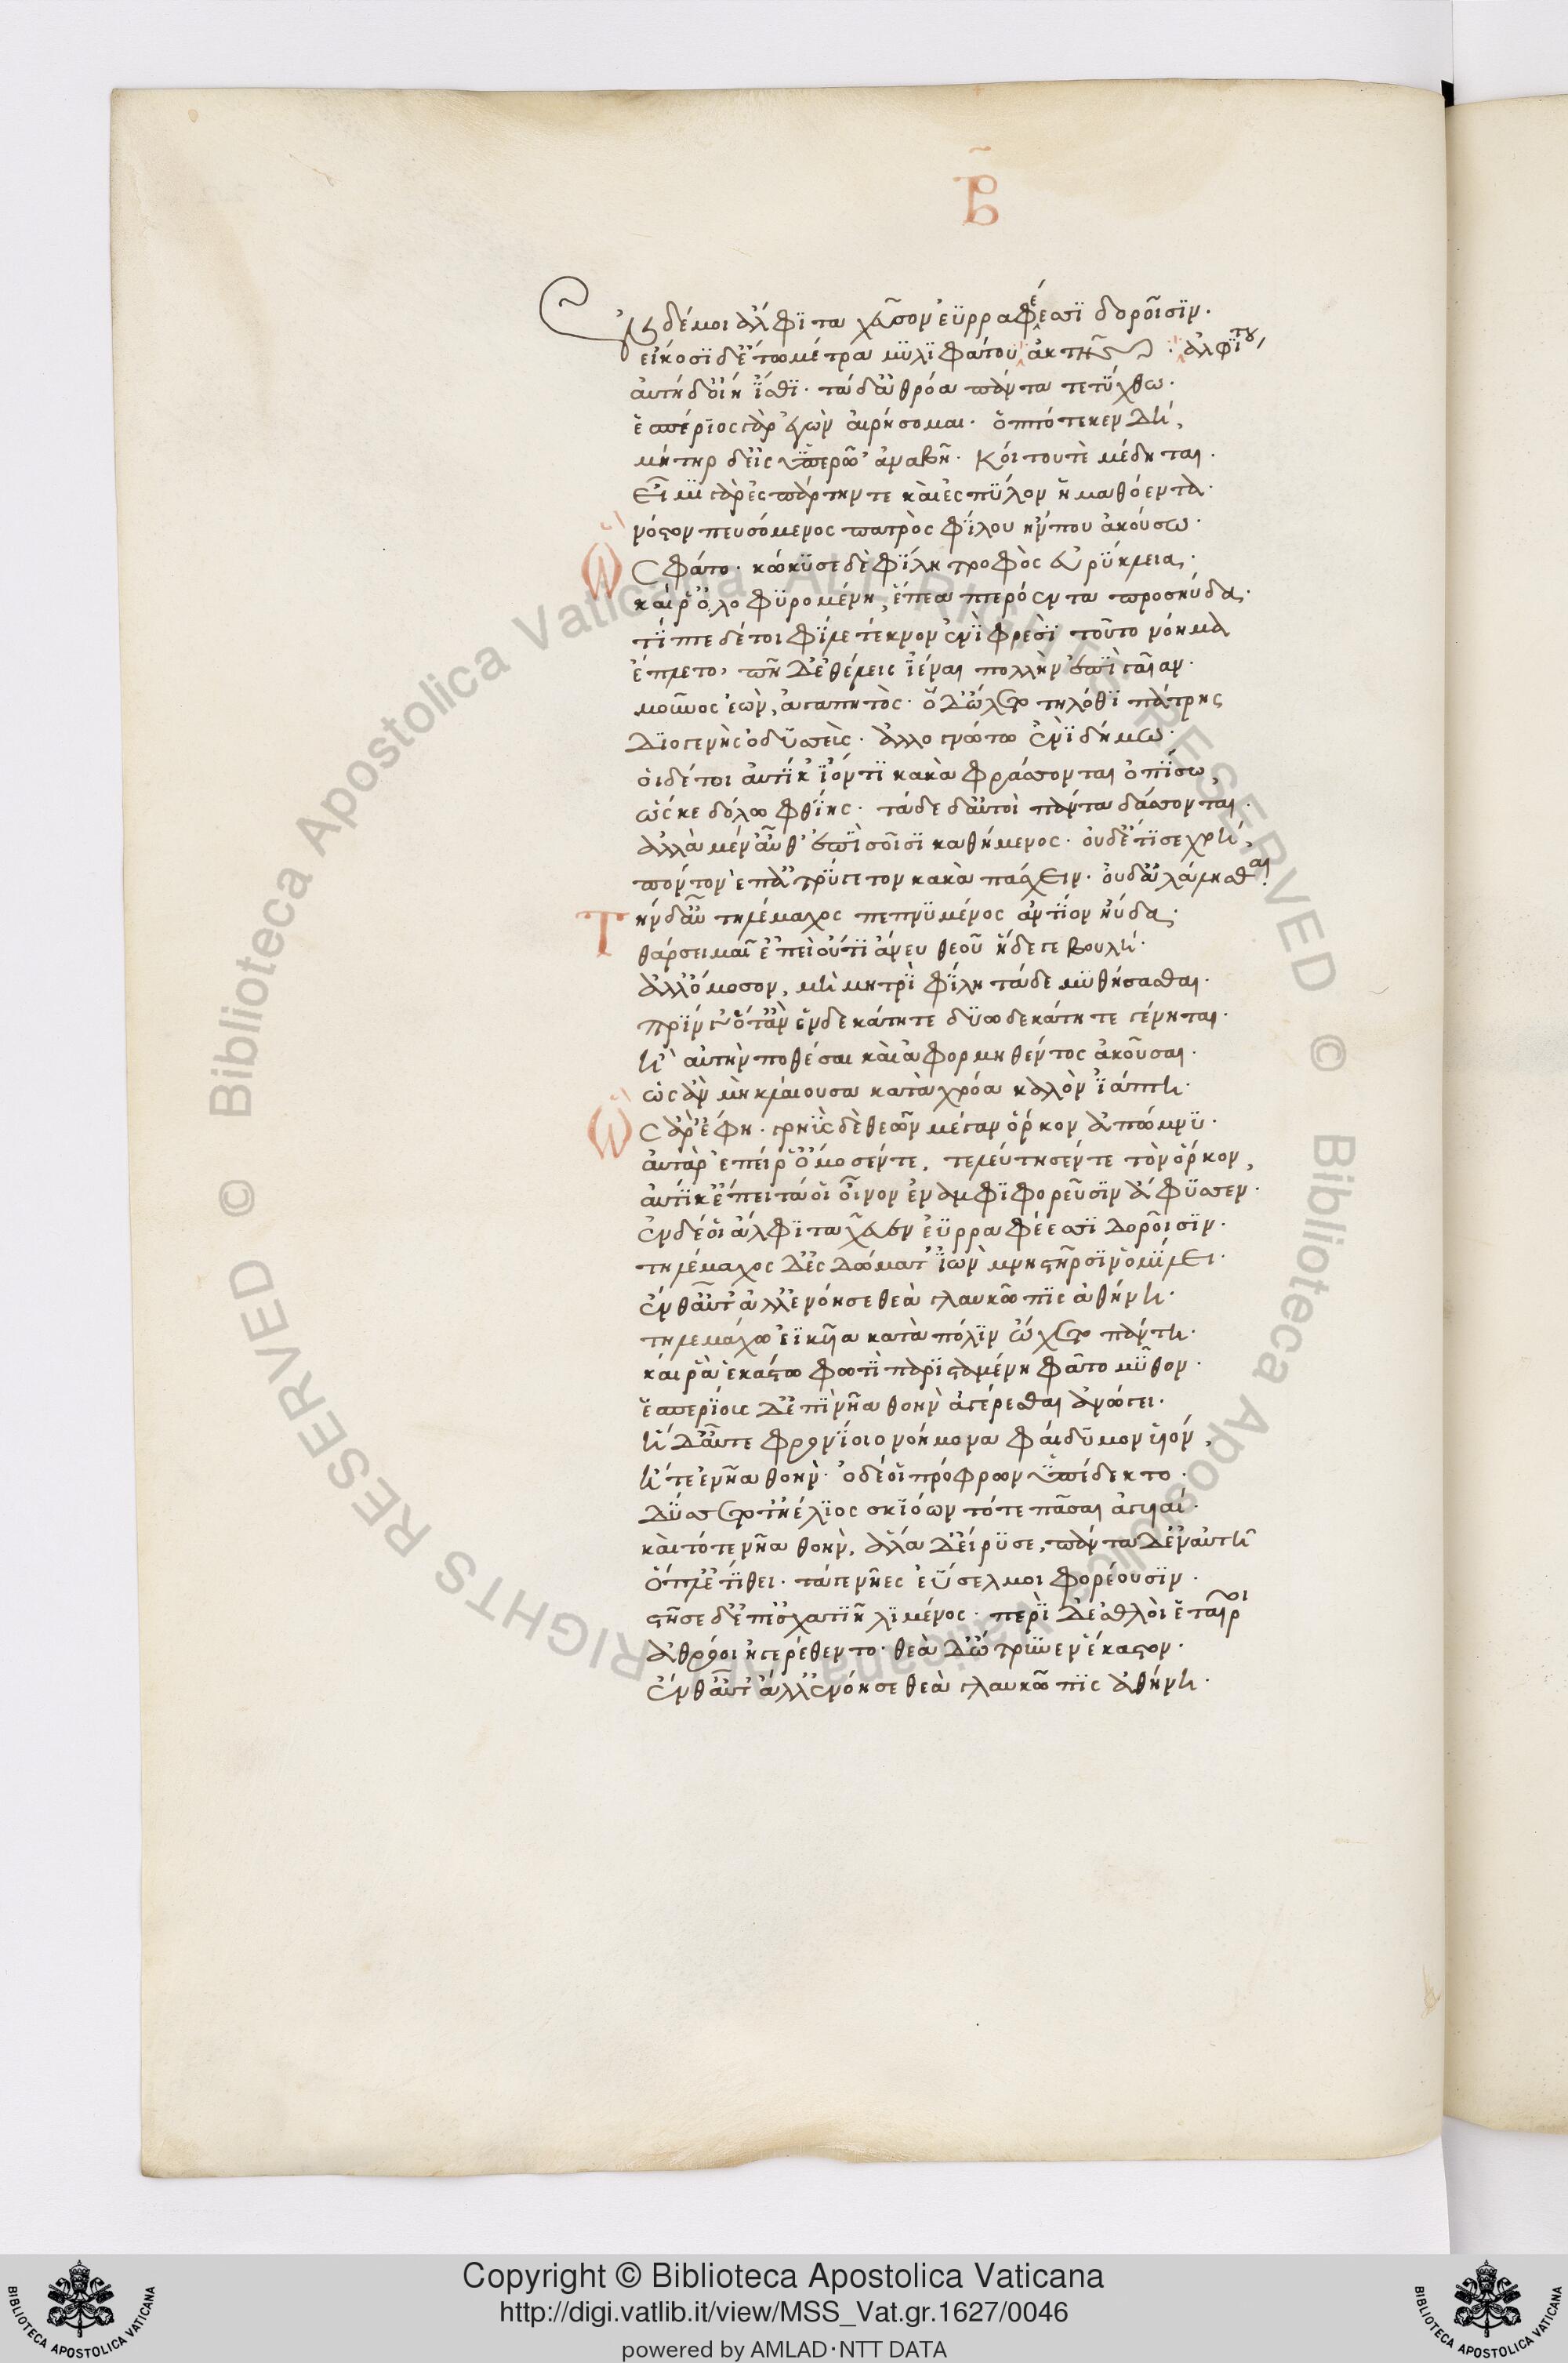 β
ἐν δέ μοι ἄλφιτα χεῦον ἐϋρραφέεσσι δοροῖσιν·
εἴκοσι δ' ἔστω μέτρα μυλιφάτου ἀκτῆς· ἀλφίτου
αὐτὴ δ' οἴη ἴσθι· τὰ δ' ἀθρόα πάντα τετύχθω·
ἑσπέριος γὰρ ἐγὼν αἱρήσομαι· ὁππότε κεν δή,
μήτηρ δ' εἰς ὑπερῶ' ἀναβῆ· κοίτου τὲ μέδηται·
εἶμι γὰρ ἐς σπάρτην τε καὶ ἐς πύλον ἠμαθόεντα·
νόστον πευσόμενος πατρὸς φίλου ἤν που ἀκούσω·
Ὣς φάτο· κώκυσε δὲ φίλη τροφὸς εὐρύκλεια·
καί ῥ' ὀλοφυρομένη, ἔπεα πτερόεντα προσηύδα·
τίπτε δέ τοι φίλε τέκνον ἐνὶ φρεσὶ τοῦτο νόημα
ἔπλετο, πῆ δ' ἐθέλεις ἰέναι πολλὴν ἐπὶ γαῖαν·
μοῦνος ἐὼν, ἀγαπητὸς· ὅ δ' ὤλετο τηλόθι πάτρης
διογενὴς ὀδυσσεὺς· ἀλλογνώτω ἐνὶ δήμω·
οἱ δέ τοι αὐτίκ' ἰόντι κακὰ φράσσονται ὀπίσω,
ὥς κε δόλω φθίης· τάδε δ' αὐτοὶ πάντα δάσσονται·
ἀλλὰ μέν' αὖθ' ἐπὶ σοῖσι καθήμενος· οὐδέ τί σε χρή,
πόντον ἐπ' ἀτρύγετον κακὰ πάσχειν· οὐδ' ἀλάλησθαι·
Τὴν δ' αὖ τηλέμαχος πεπνυμένος ἀντίον ηὔδα·
θάρσει μαῖ' ἐπεὶ οὔτι ἄνευ θεοῦ ἥδε γε βουλή·
ἀλλ' ὄμοσον, μὴ μητρὶ φίλη τάδε μυθήσασθαι·
πρίν γ' ὅτ' ἂν ἑνδεκάτη τε δυωδεκάτη τε γένηται·
ἢ αὐτὴν ποθέσαι καὶ ἀφορμηθέντος ἀκοῦσαι·
ὡς ἂν μὴ κλαίουσα κατὰ χρόα καλὸν ἰάπτη·
Ὣς ἄρ' ἔφη· γρηῢς δὲ θεῶν μέγαν ὅρκον ἀπώμνυ·
αὐτὰρ ἐπεί ῥ' ὄμοσέν τε, τελεύτησέν τε τὸν ὅρκον,
αὐτίκ' ἔπειτά οἱ οἶνον ἐν ἀμφιφορεῦσιν ἄφυσσεν·
ἐν δέ οἱ ἄλφιτα χεῦεν ἐϋρραφέεσσι δοροῖσιν·
τηλέμαχος δ' ἐς δώματ' ἰὼν μνηστῆρσιν ὁμίλει·
ἔνθ' αὖτ' ἄλλ' ἐνόησε θεὰ γλαυκῶπις ἀθήνη·
τηλεμάχω εἰκυῖα κατὰ πόλιν ὤχετο πάντη·
καί ῥα ἑκάστω φωτὶ παρισταμένη φάτο μῦθον·
ἑσπερίους δ' ἐπὶ νῆα θοὴν ἀγέρεσθαι ἀνώγει·
ἡ δ' αὖτε φρονίοιο νοήμονα φαίδιμον υἱὸν,
ἤτεε νῆα θοὴν· ὁ δέ οἱ πρόφρων ὑπέδεκτο·
δύσετό τ' ἠέλιος σκιόωντό τε πᾶσαι ἀγυιαί·
καὶ τότε νῆα θοὴν, ἅλαδ' εἴρυσε, πάντα δ' ἐν αὐτῆ
ὅπλ' ἐτίθει· τά γε νῆες ἐΰσελμοι φορέουσιν·
στῆσε δ' ἐπ' ἐσχατιῆ λιμένος· περὶ δ' ἐσθλοὶ ἑταῖροι
ἀθρόοι ἠγερέθεντο· θεὰ δ' ὤτρυνεν ἕκαστον·
ἔνθ' αὖτ' ἄλλ' ἐνόησε θεὰ γλαυκῶπις ἀθήνη·
© Biblioteca Apostolica Vaticana ALL RIGHTS RESERVED
© Biblioteca Apostolica Vaticana ALL RIGHTS RESERVED
Copyright © Biblioteca Apostolica Vaticana
http://digi.vatlib.it/view/MSS_Vat.gr.1627/0046
powered by AMLAD·NTT DATA
BIBLIOTECA APOSTOLICA VATICANA
BIBLIOTECA APOSTOLICA VATICANA